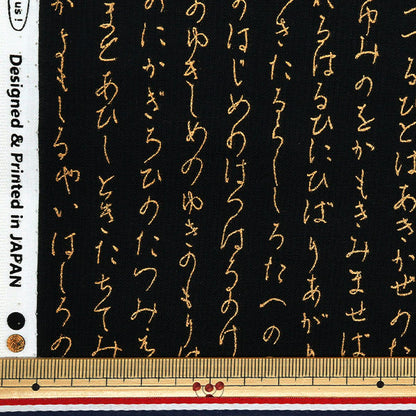 ひとはあきかぜの
ゆみのをかもきみませば
れるはるひにひばりあがり
つきたるらししろたへの
のはじめのはつはるのけ
のゆきしめのゆきのもりは
のにかぎろひのたつみえ
まとあひしときたちてみ
がよもしるやいはしろの
us!
Designed & Printed in JAPAN